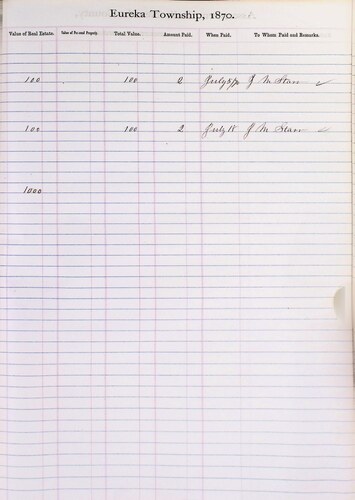 Eureka Township, 1870.
Value of Real Estate. Value of Personal Property. Total Value. Amount Paid. When Paid. To Whom Paid and Remarks.
100 100 2 July J M Starr
100 100 2 July 18 J M Starr
1000